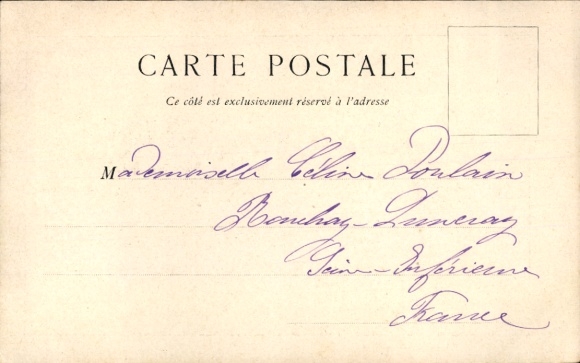 CARTE POSTALE
Ce côté est exclusivement réservé à l'adresse
Mademoiselle Céline Poulain
Seine-Inférieure
France